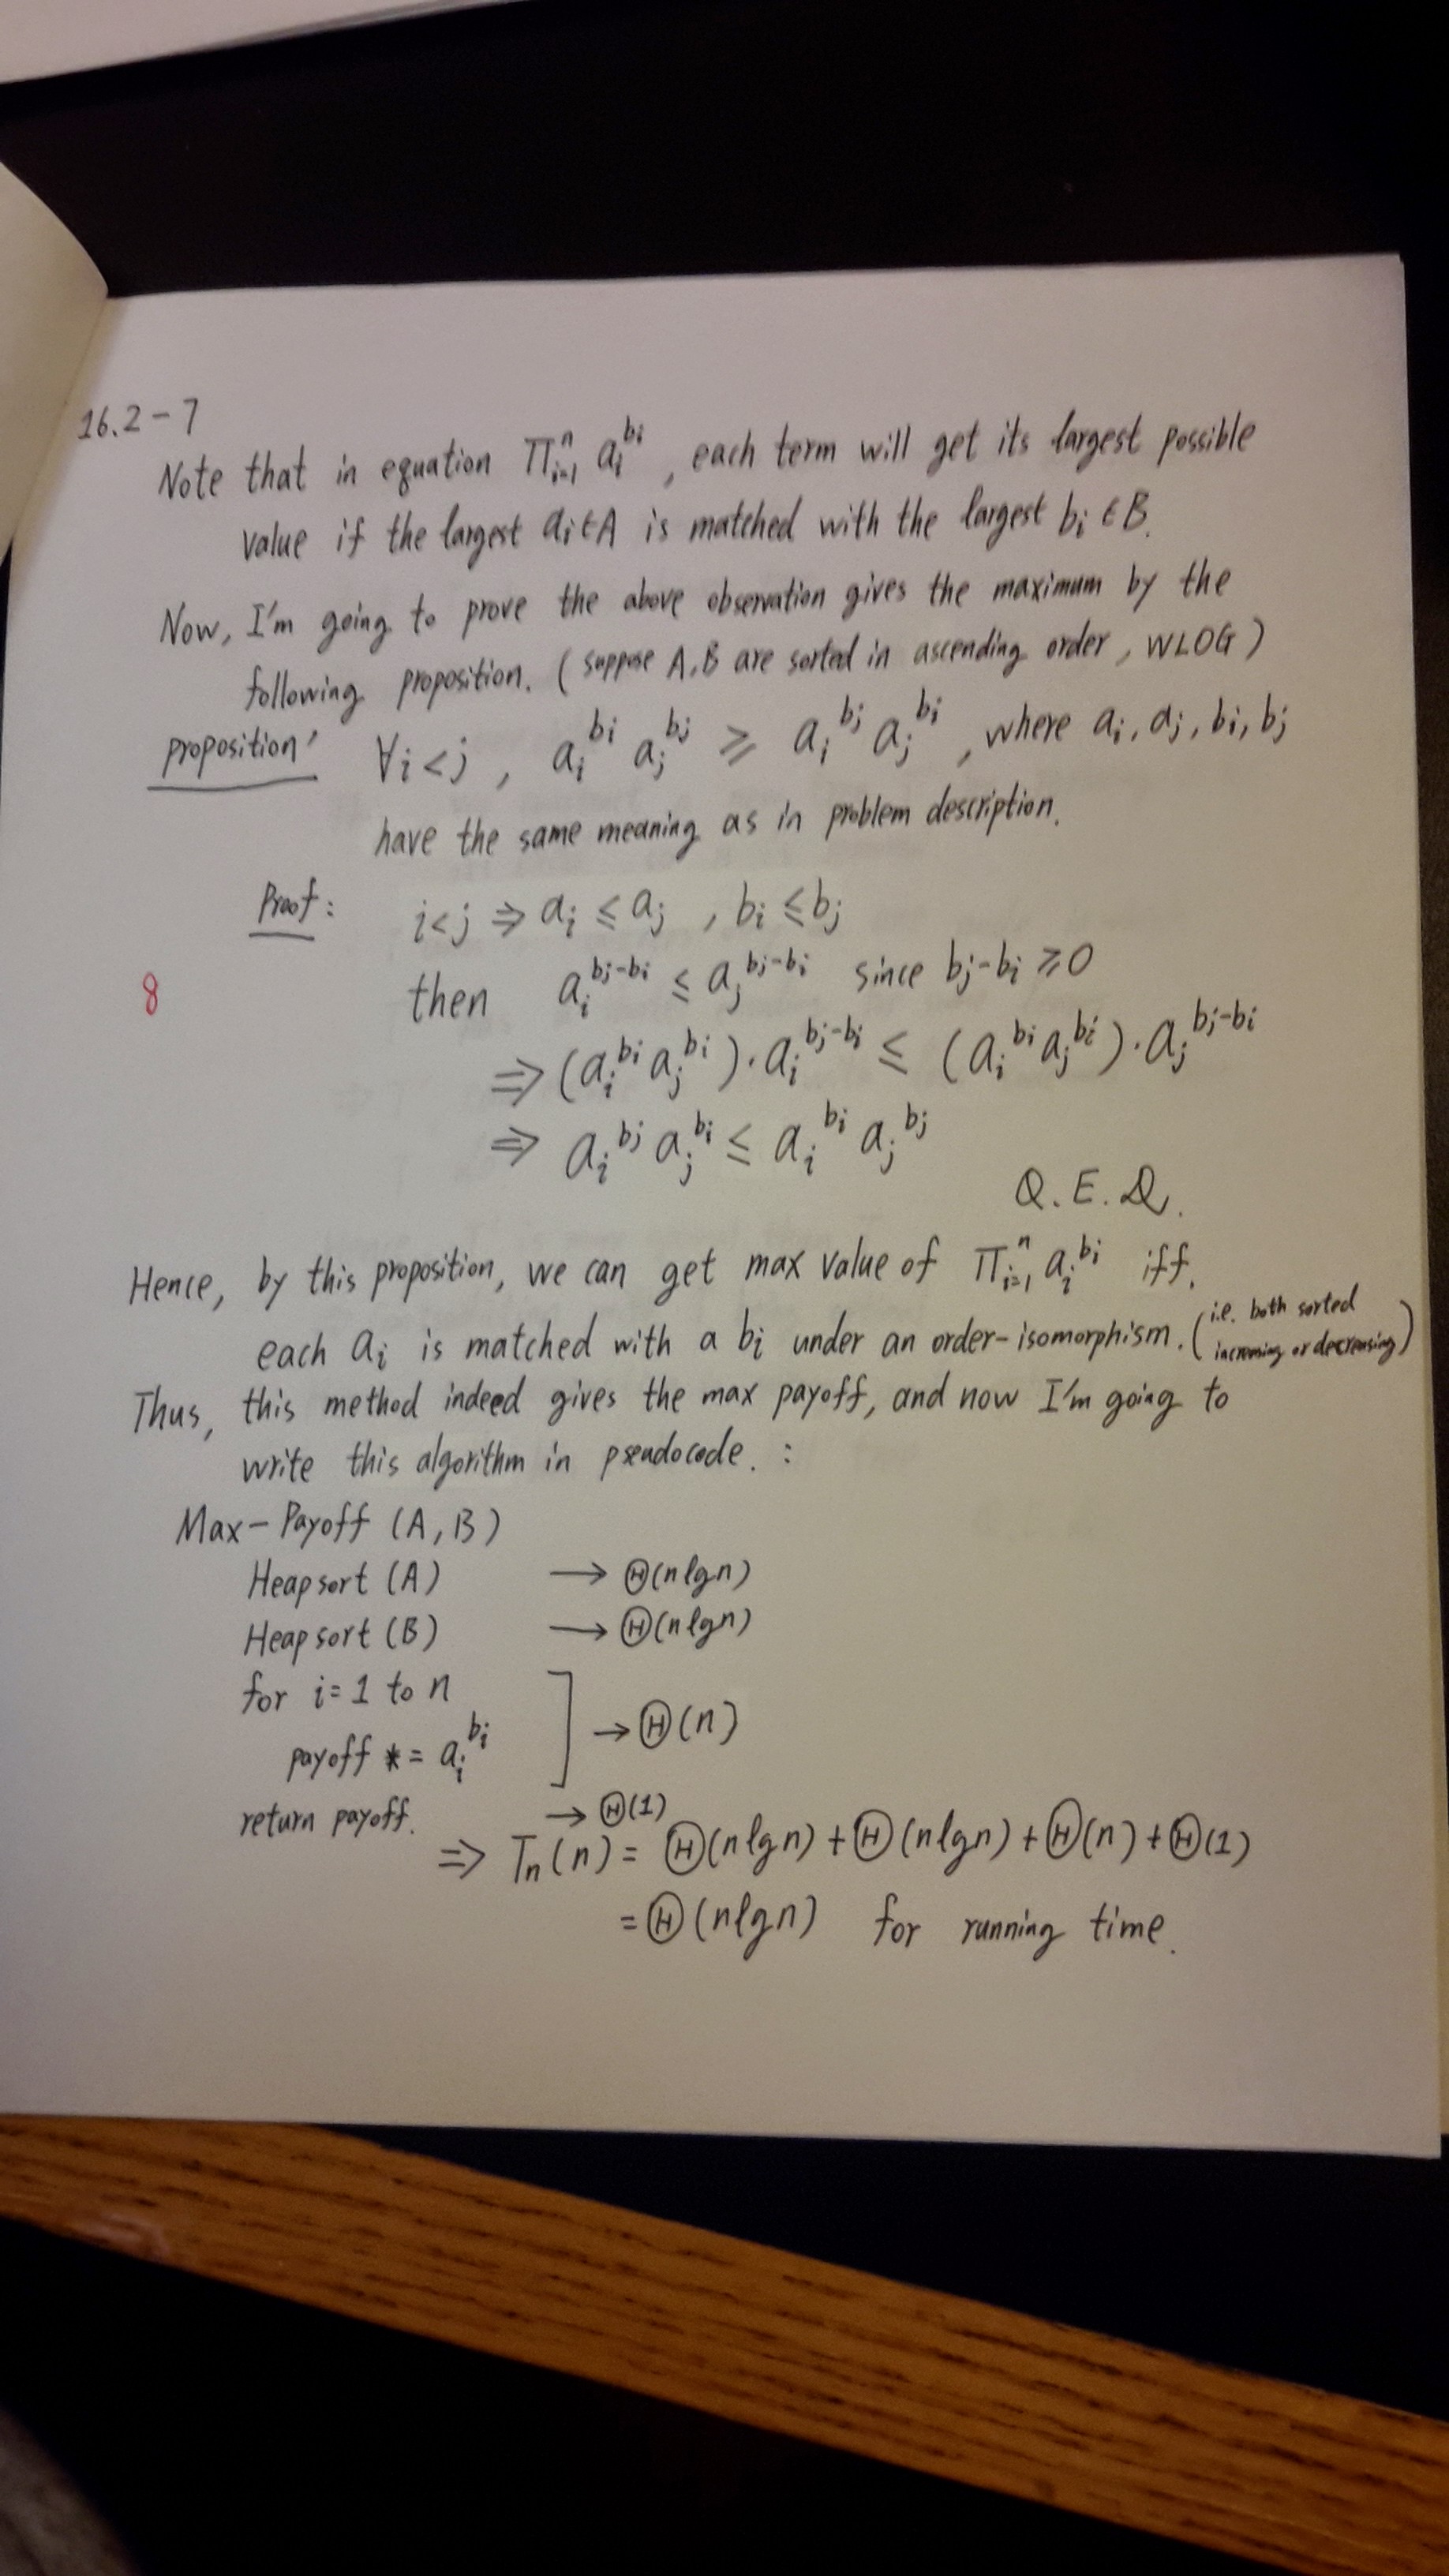 16.2-7
Note that in equation ∏ᵢ₌₁ⁿ aᵢ^bᵢ, each term will get its largest possible
value if the largest aᵢ∈A is matched with the largest bᵢ∈B.
Now, I'm going to prove the above observation gives the maximum by the
following proposition. (suppose A,B are sorted in ascending order, WLOG)
proposition: ∀i<j, aᵢ^bᵢ aⱼ^bⱼ ≥ aᵢ^bⱼ aⱼ^bᵢ, where aᵢ, aⱼ, bᵢ, bⱼ
have the same meaning as in problem description.
Proof: i<j ⇒ aᵢ ≤ aⱼ, bᵢ ≤ bⱼ
8 then aᵢ^(bⱼ-bᵢ) ≤ aⱼ^(bⱼ-bᵢ) since bⱼ-bᵢ ≥ 0
⇒ (aᵢ^bᵢ aⱼ^bᵢ)·aᵢ^(bⱼ-bᵢ) ≤ (aᵢ^bᵢ aⱼ^bᵢ)·aⱼ^(bⱼ-bᵢ)
⇒ aᵢ^bⱼ aⱼ^bᵢ ≤ aᵢ^bᵢ aⱼ^bⱼ
Q.E.D.
Hence, by this proposition, we can get max value of ∏ᵢ₌₁ⁿ aᵢ^bᵢ iff.
each aᵢ is matched with a bᵢ under an order-isomorphism. (i.e. both sorted increasing or decreasing)
Thus, this method indeed gives the max payoff, and now I'm going to
write this algorithm in pseudocode. :
Max-Payoff (A,B)
Heapsort (A) → Θ(nlgn)
Heapsort (B) → Θ(nlgn)
for i=1 to n
payoff *= aᵢ^bᵢ ] → Θ(n)
return payoff. → Θ(1)
⇒ Tₙ(n) = Θ(nlgn) + Θ(nlgn) + Θ(n) + Θ(1)
= Θ(nlgn) for running time.